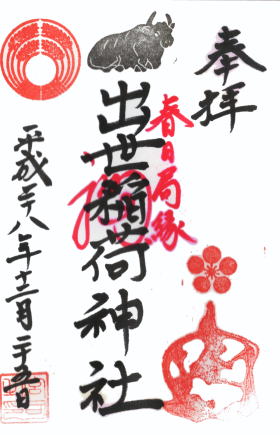 奉拝
春日局縁
出世稲荷神社
平成二十八年十二月二十五日